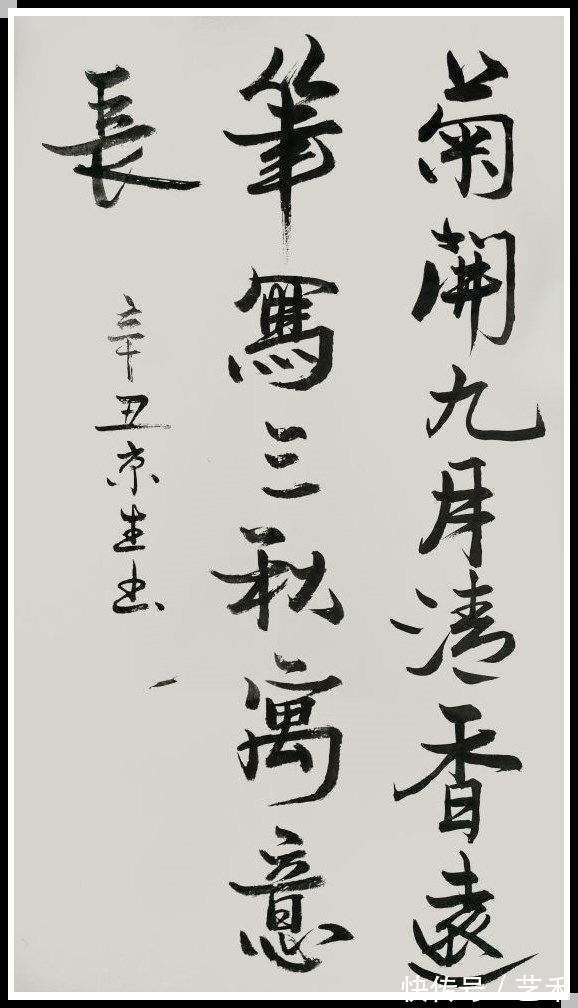 菊開九月清香遠
筆寫三秋寓意
長
辛丑京生书
快传号/艺和